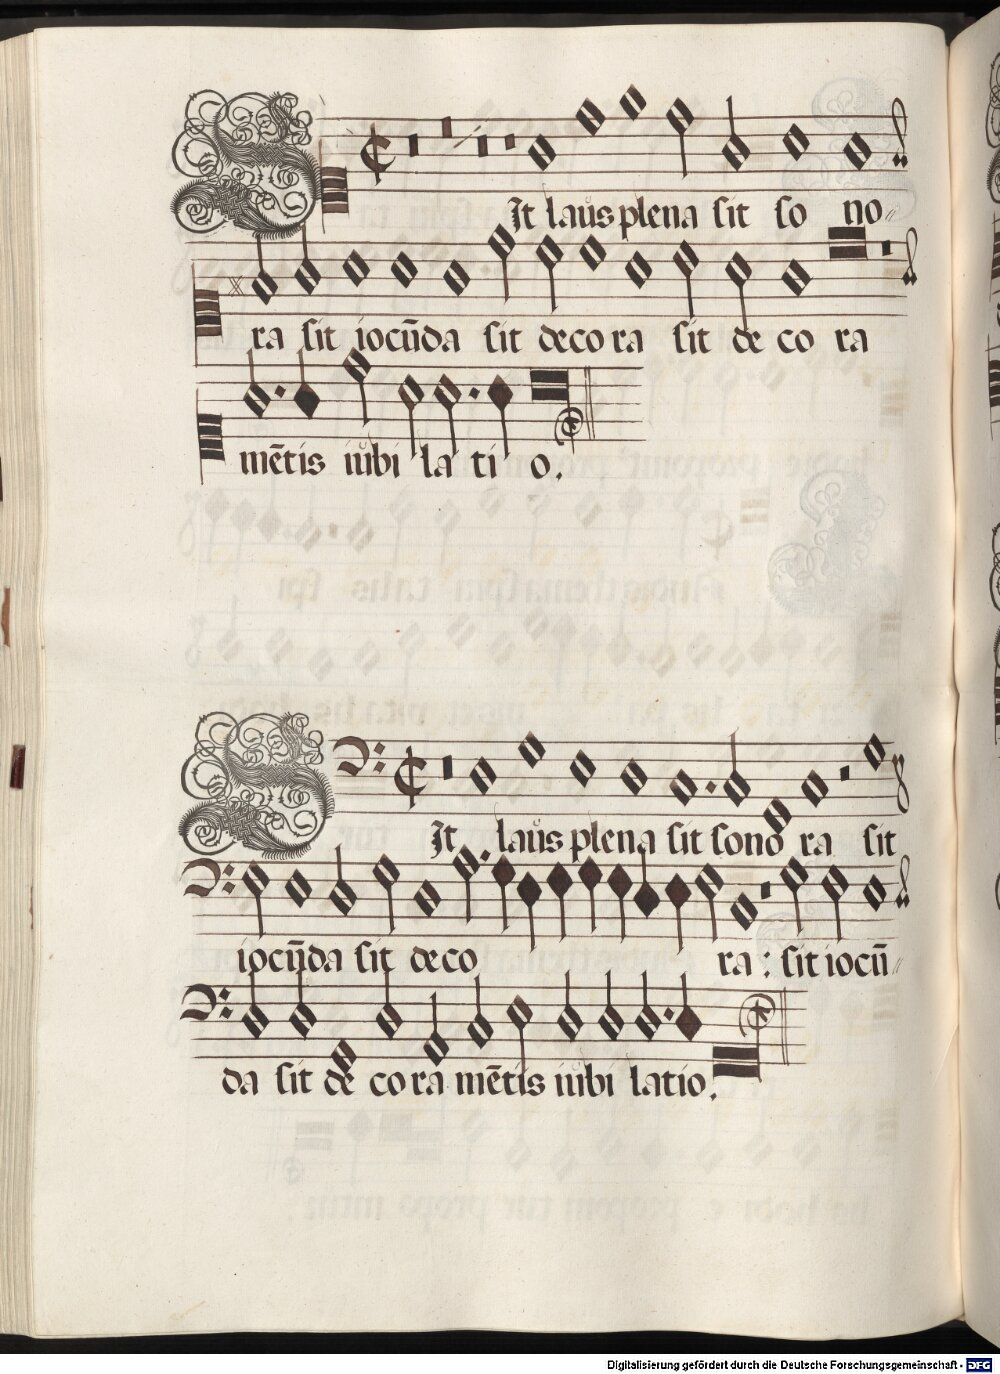 Sit laůs plena sit so no⸗
ra sit iocūda sit deco ra sit de co ra
mētis iůbi la ti o.
Sit laůs plena sit sono ra sit
iocūda sit deco ra : sit iocū⸗
da sit de co ra mētis iůbi latio.
Digitalisierung gefördert durch die Deutsche Forschungsgemeinschaft - DFG